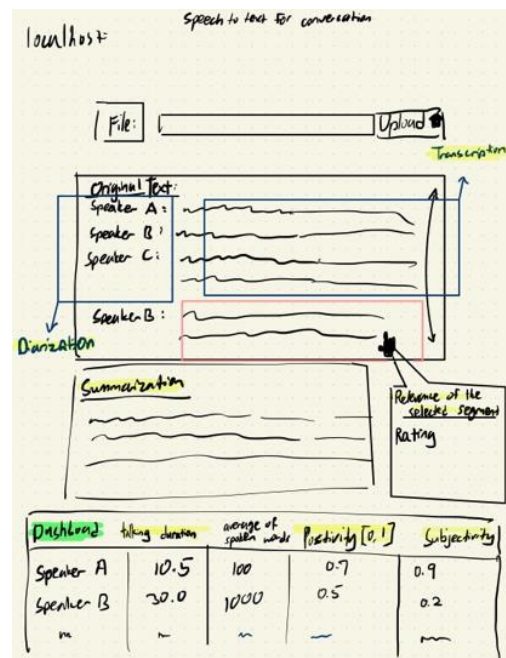 Speech to text for conversation
localhost:
File: Upload
Transcription
Original Text:
Speaker A:
Speaker B:
Speaker C:
Speaker B:
Diarization
Summarization
Relevance of the
selected segment
Rating
Dashboad talking duration average of spoken words Positivity [0,1] Subjectivity
Speaker A 10.5 100 0.7 0.9
Speaker B 30.0 1000 0.5 0.2